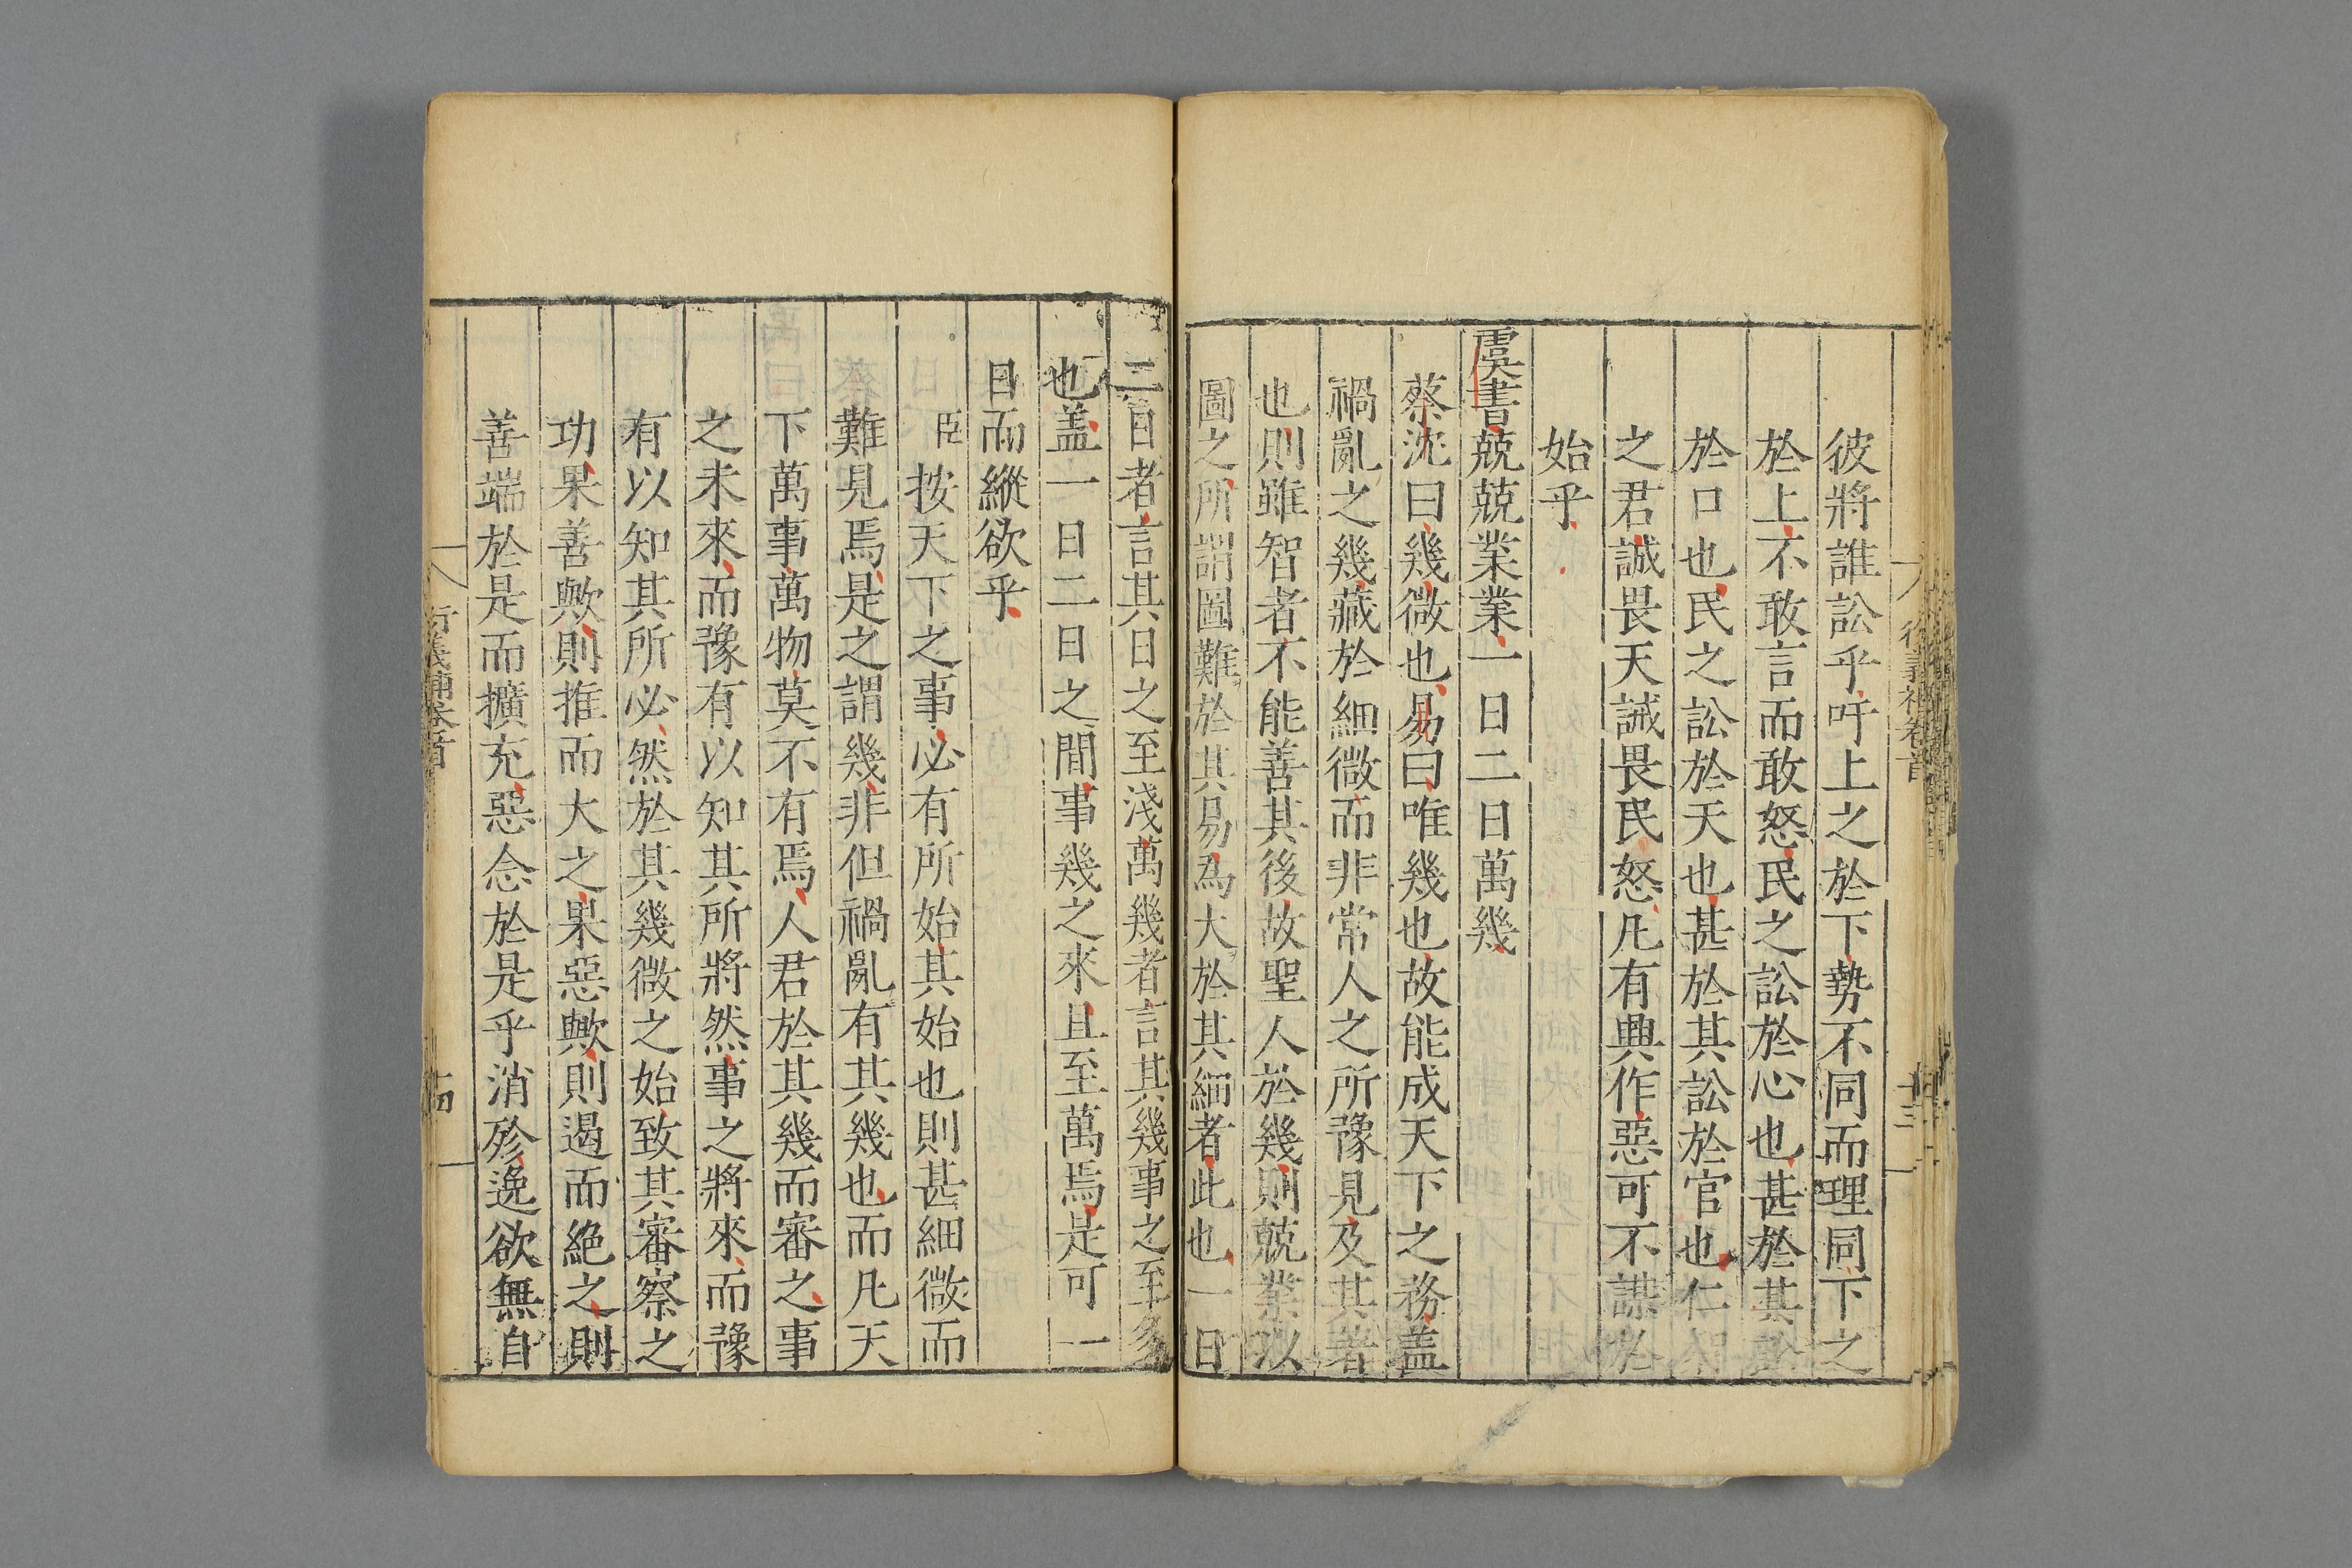 彼將誰訟乎吁上之於下勢不同而理同下之
於上不敢言而敢怒民之訟於心也甚於其訟
於口也民之訟於天也甚於其訟於官也仁
之君誠畏天誡畏民怒凡有興作惡可不謀於
始乎
虞書兢兢業業一日二日萬幾
蔡沈曰幾微也易曰唯幾也故能成天下之務盖
禍亂之幾藏於細微而非常人之所豫見及其著
也則雖智者不能善其後故聖人於幾則兢業以
圖之所謂圖難於其易為大於其細者此也一日
二日者言其日之至淺萬幾者言其幾事之至多
也盖一日二日之間事幾之來且至萬焉是可一
日而縱欲乎
臣按天下之事必有所始其始也則甚細微而
難見焉是之謂幾非但禍亂有其幾也而凡天
下萬事萬物莫不有焉人君於其幾而審之事
之未來而豫有以知其所將然事之將來而豫
有以知其所必然於其幾微之始致其審察之
功果善歟則推而大之果惡歟則遏而絕之則
善端於是而擴充惡念於是乎消殄逸欲無自
衍義補卷首
十四